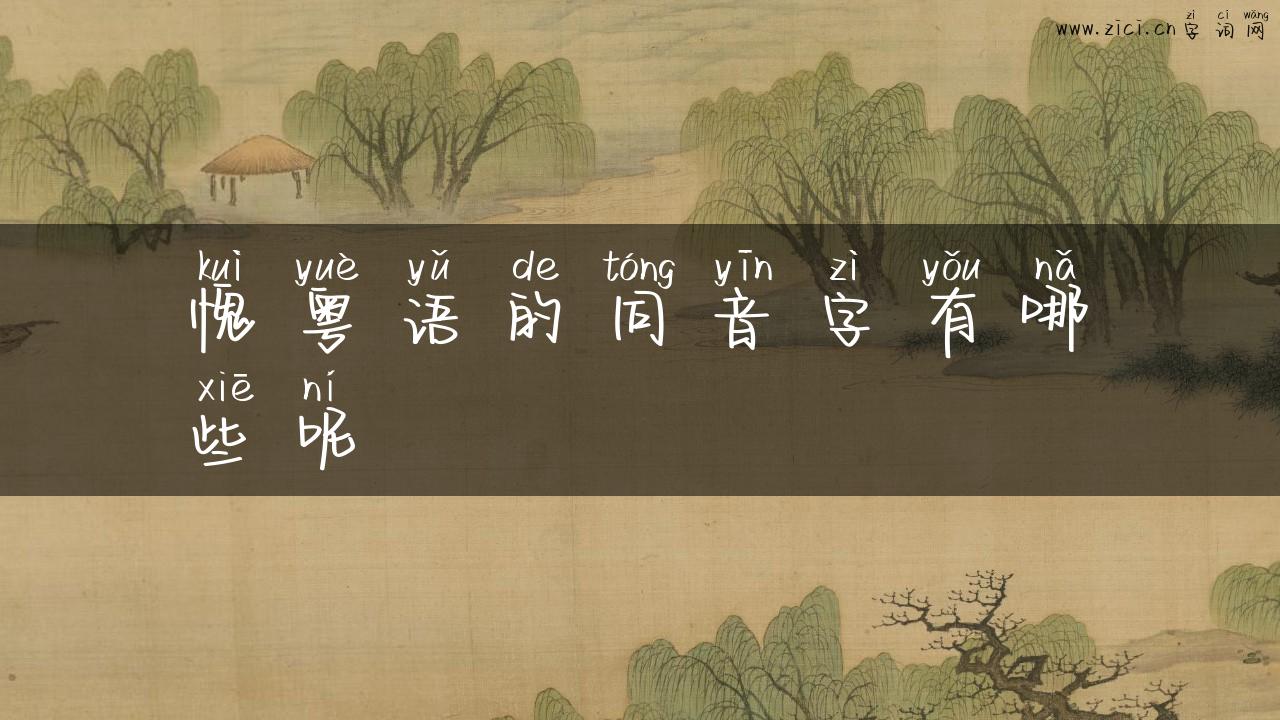 zì cí wǎng
www.zici.cn字词网
kuì yuè yǔ de tóng yīn zì yǒu nǎ
愧粤语的同音字有哪
xiē ní
些呢